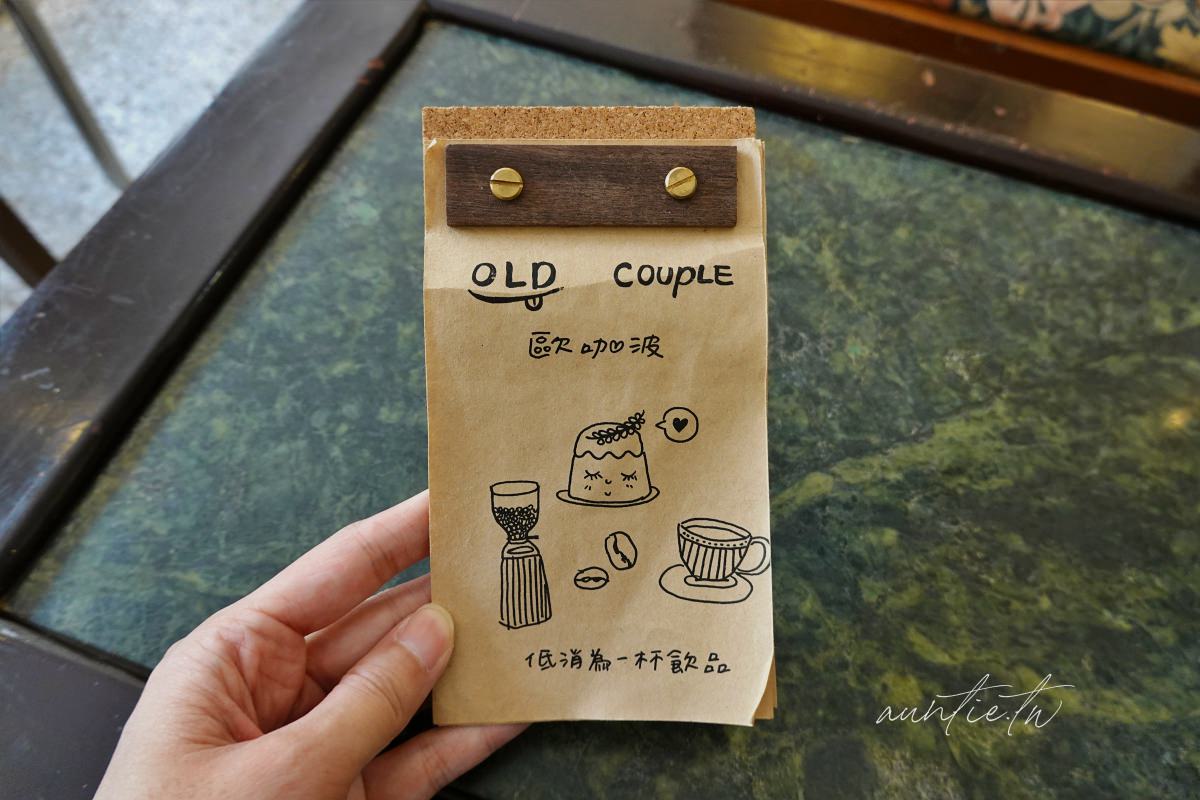 OLD COUPLE
歐咖波
低消為一杯飲品
auntie.tw